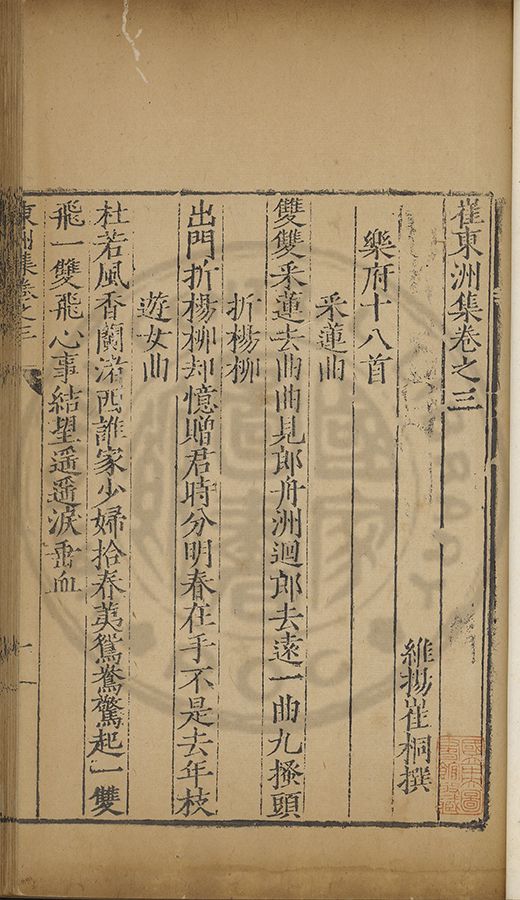 崔東洲集卷之三
維揚崔桐撰
樂府十八首
采蓮曲
雙雙采蓮去曲曲見郎舟洲迴郎去遠一曲九搔頭
折楊柳
出門折楊柳却憶贈君時分明春在手不是去年枝
遊女曲
杜若風香蘭渚西誰家少婦拾春荑鴛鴦驚起一雙
飛一雙飛心事結望遥遥淚垂血
東洲集卷之三
一